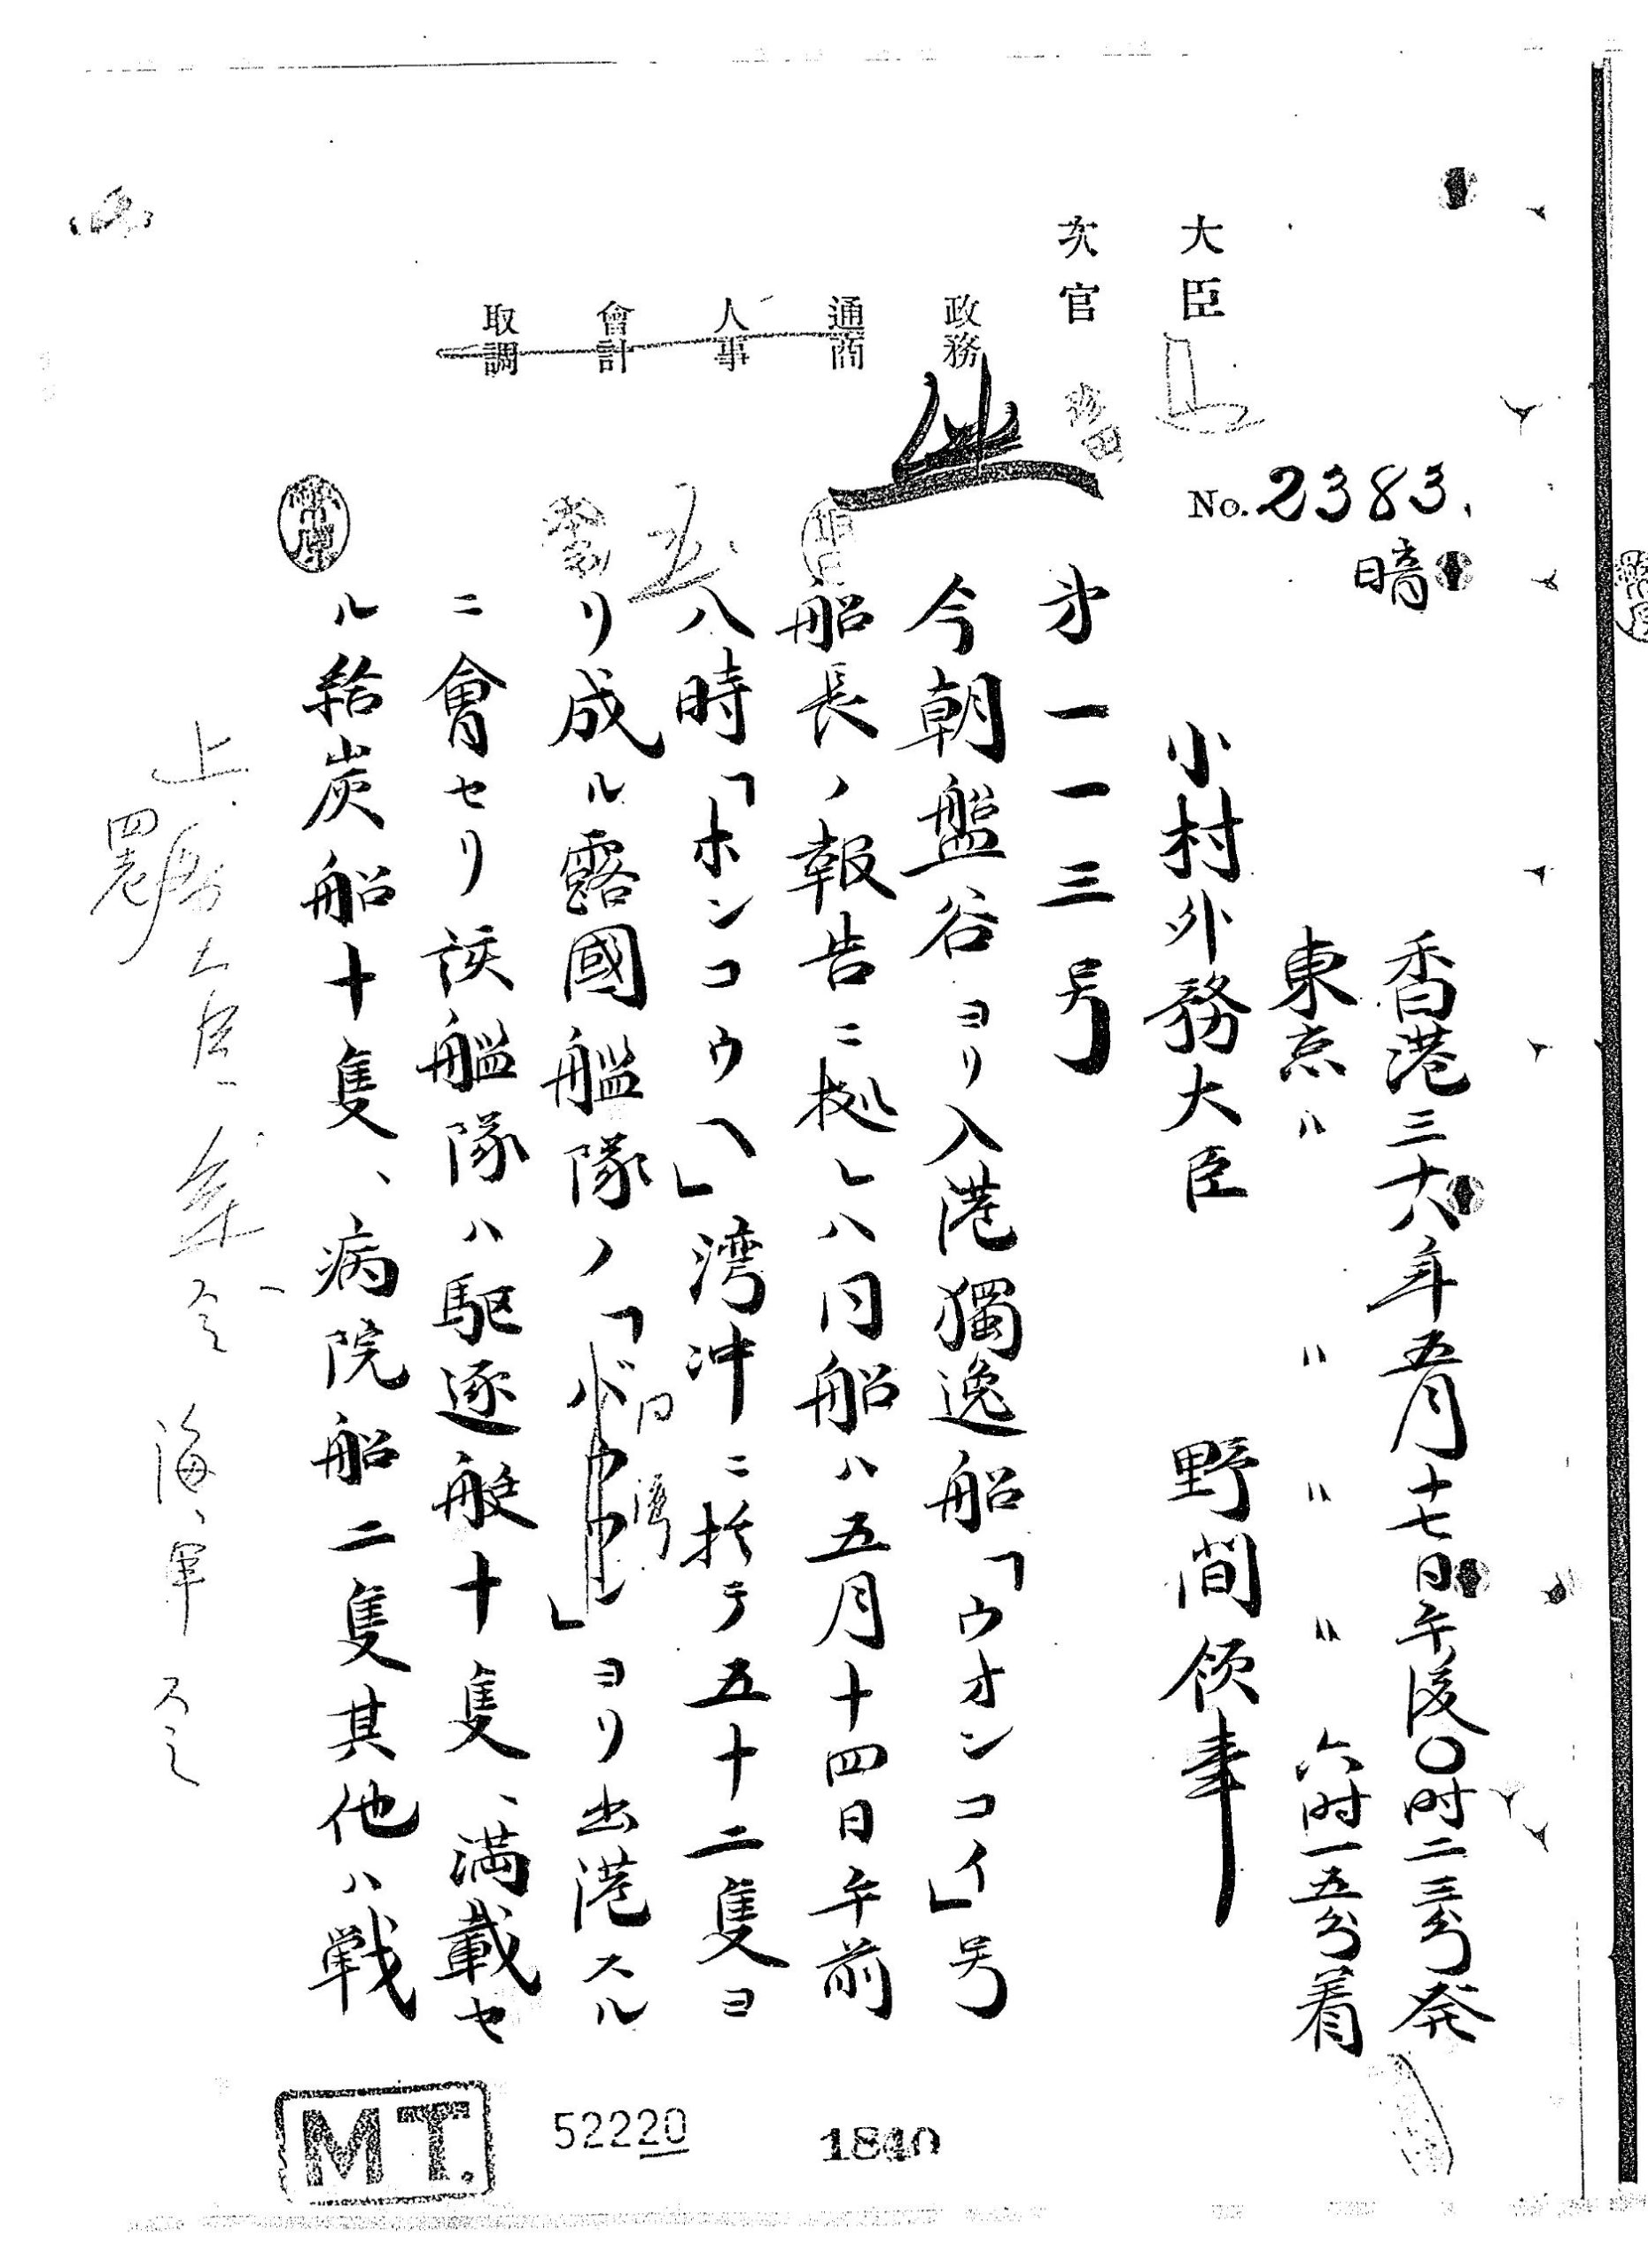 大臣
次官
政務
通商
人事
會計
取調
No. 2383.
暗
香港三十八年五月十七日午後〇时二三分発
東京〃 〃 〃 〃 六时一五分着
小村外務大臣 野間領事
第一一三号
今朝盤谷ヨリ入港獨逸船「ウオンコイ」号
船長ノ報告ニ拠レハ同船ハ五月十四日午前
八時「ホンコウヘ」湾沖ニ於テ五十二隻ヨ
リ成ル露國艦隊ノ「同湾」ヨリ出港スル
ニ會セリ該艦隊ハ駆逐艇十隻、満載セ
ル給炭船十隻、病院船二隻其他ハ戦
上
海軍
MT.
52220
1840